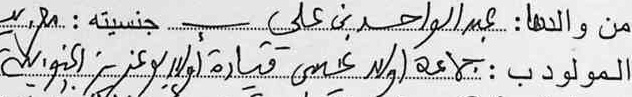 من والدها: عبد الواحد بن علي جنسيته: مغربية
المولود ب: جماعة اولاد عيسى قيادة أولاد بوعزيز الجنوبية